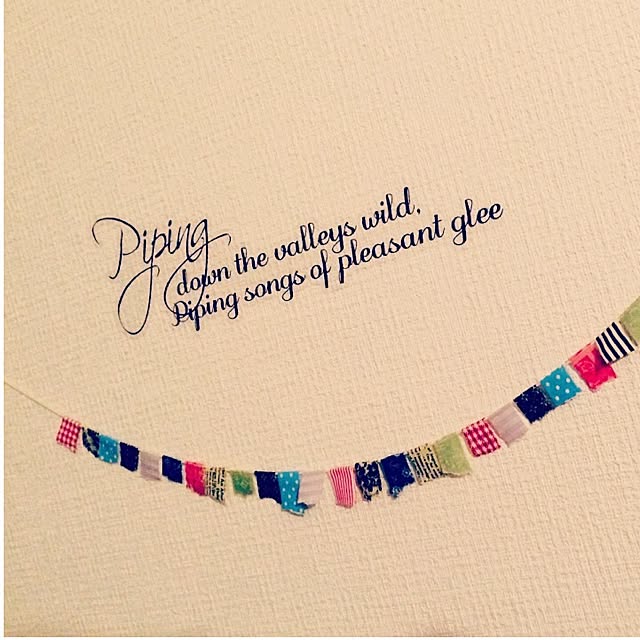 Piping
down the valleys wild,
Piping songs of pleasant glee